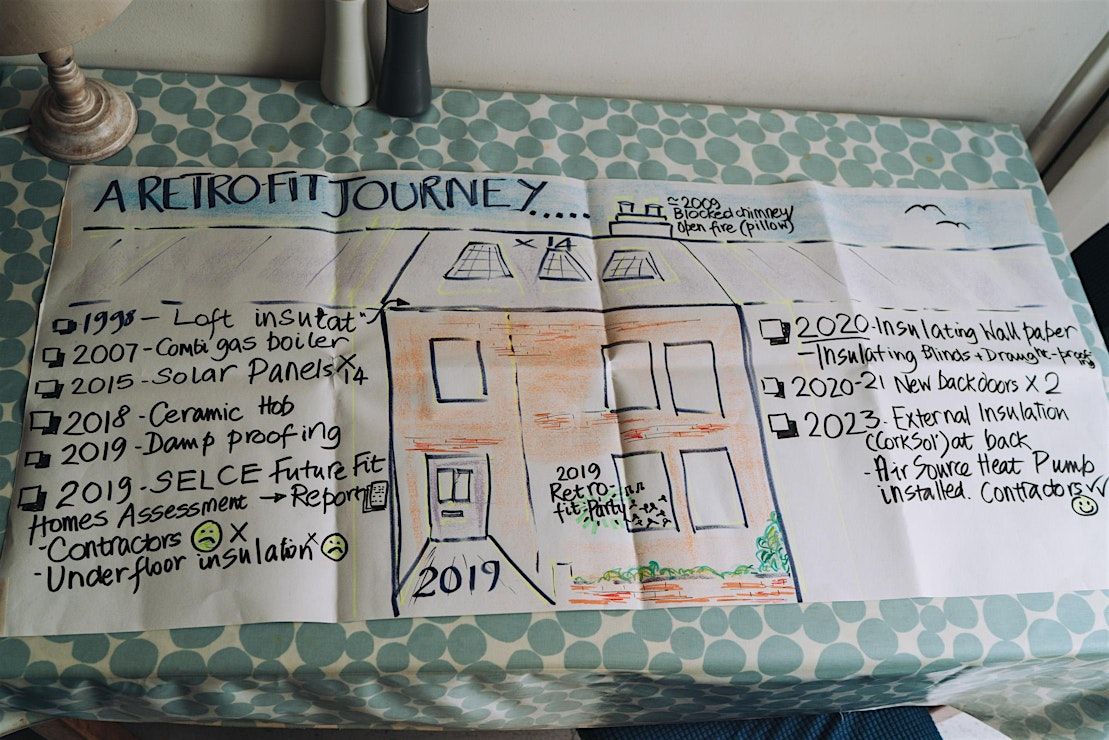 A RETROFIT JOURNEY.....
~2009
Blocked chimney/
Open fire (pillow)
x 14
1998 - Loft insulat"
2007 - Combi gas boiler
2015 - Solar Panels x 14
2018 - Ceramic Hob
2019 - Damp proofing
2019 - SELCE Future Fit
Homes Assessment → Report
- Contractors x
- Underfloor insulation x
2019
2019
Retro-
fit Party
2020 - Insulating Wallpaper
- Insulating Blinds + Draught-proofing
2020-21 New backdoors x 2
2023. External Insulation
(CorkSol) at back
- Air Source Heat Pump
installed. Contractors ✓